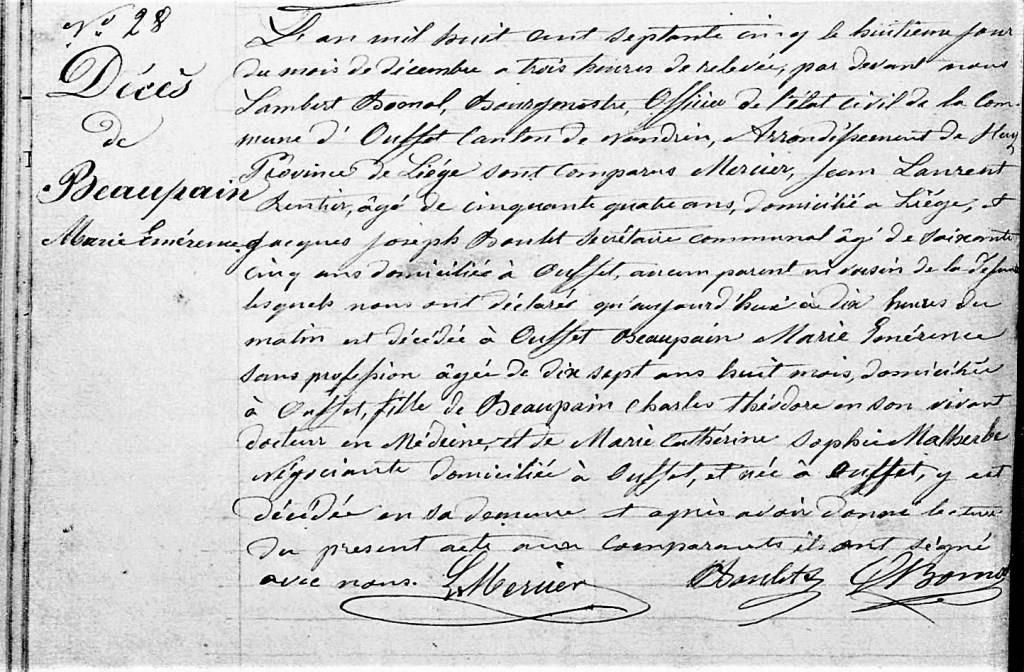 No 28
Décès
de
Beaupain
Marie Emérence
L'an mil huit cent septante cinq le huitième jour
du mois de décembre a trois heures de relevée, par devant nous
Lambert Bomal, Bourgmestre, Officier de l'état civil de la Com-
mune d'Ouffet Canton de nandrin, Arrondissement de Huy
Province de Liége sont comparus Mercier, Jean Laurent
Rentier, âgé de cinquante quatre ans, domicilié a Liége, et
Jacques Joseph secrétaire communal âgé de soixante
cinq ans domicilié à Ouffet, aucun parent ni voisin de la défunte
lesquels nous ont déclaré qu'aujourd'hui à dix heures du
matin est décédée à Ouffet Beaupain Marie Emérence
sans profession âgée de dix sept ans huit mois, domiciliée
à Ouffet, fille de Beaupain Charles théodore en son vivant
docteur en Médecine, et de Marie Cathérine Sophie Malherbe
négociante domiciliée à Ouffet, et née à Ouffet, y est
décédée en sa demeure et après avoir donné lecture
du present acte aux comparants ils ont signé
avec nous. LMercier LBomal